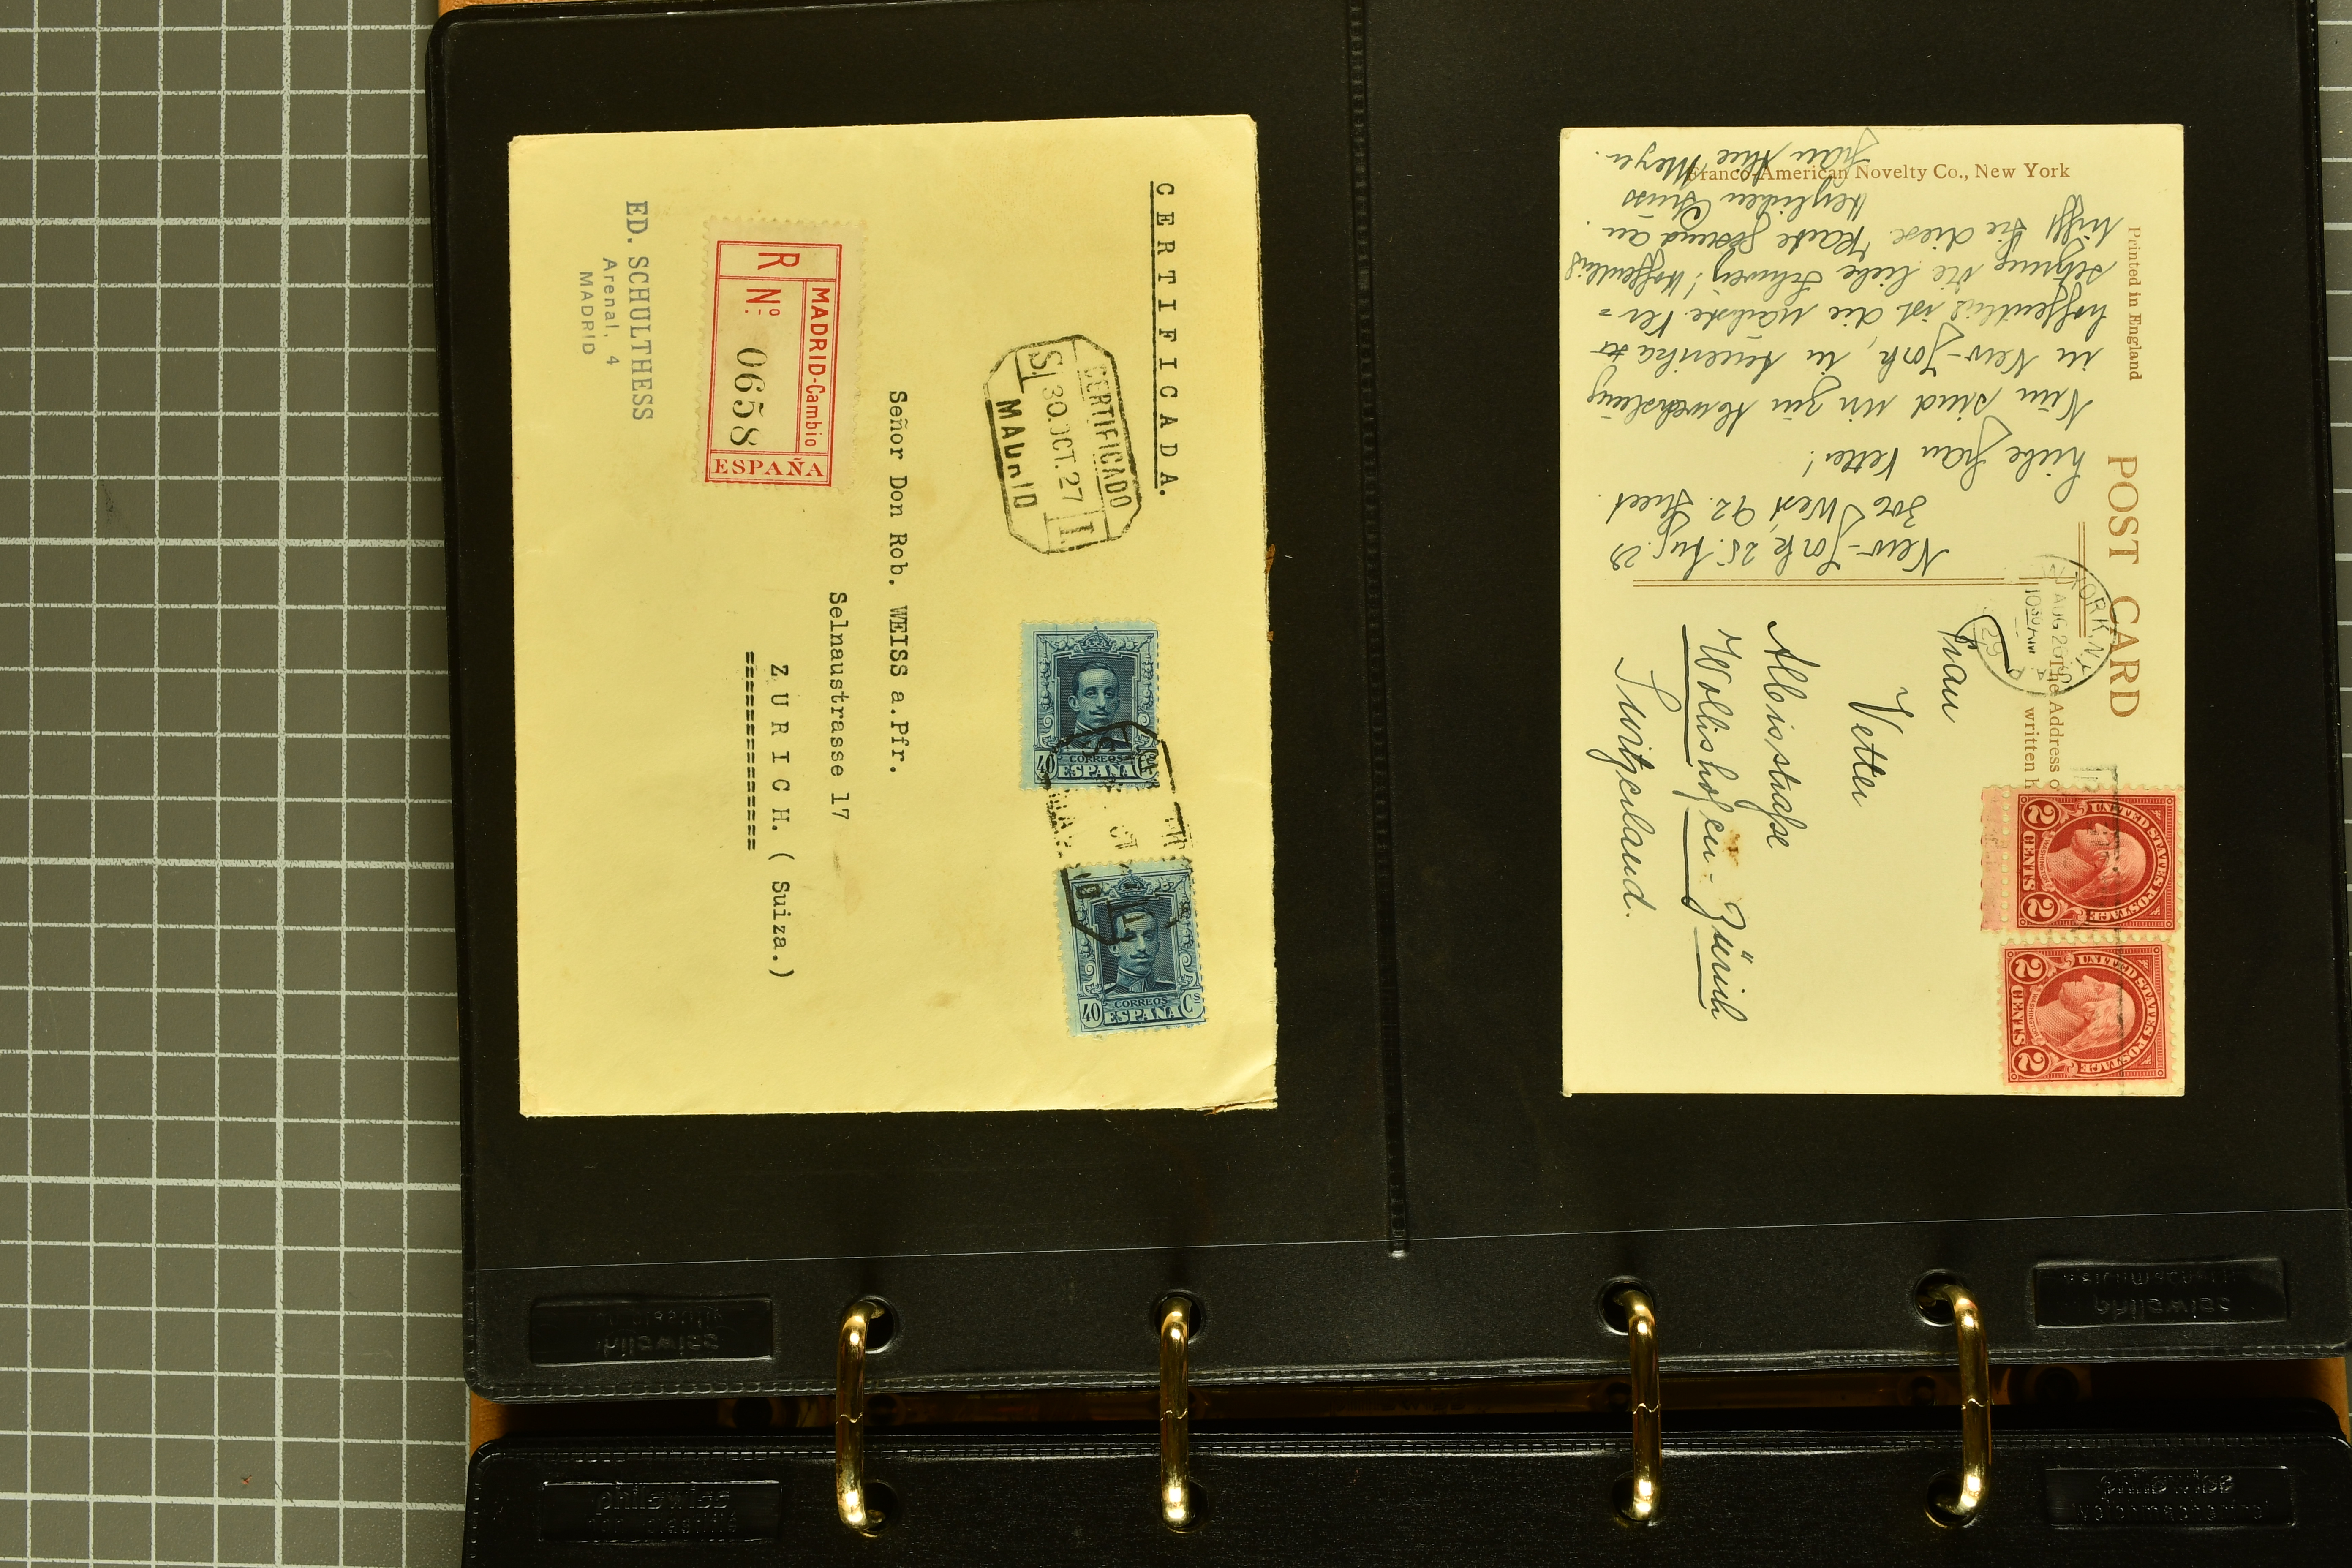 CERTIFICADA.
CERTIFICADO
S. 30.OCT.27 T.
MADRID
40 CORREOS Cs
ESPAÑA
40 CORREOS Cs
ESPAÑA
Señor Don Rob. WEISS a.Pfr.
Selnaustrasse 17
ZURICH. (Suiza.)
====================
MADRID-Cambio
R Nº 0658
ESPAÑA
ED. SCHULTHESS
Arenal, 4
MADRID
Printed in England
POST CARD
The Address o
written h
Franco-American Novelty Co., New York
YORK, N.Y.
AUG 26
10 30 AM
29
UNITED STATES POSTAGE
2 CENTS 2
UNITED STATES POSTAGE
2 CENTS 2
Frau
Vetter
Albisstraße
Wollishofen-Zürich
Switzerland.
New-York 25. Aug. 29
306 West, 92. Street
Liebe Frau Vetter!
Nun sind wir zur Abwechslung
in New-York, in Amerika
hoffentlich ist die nächste Ver=
setzung die liebe Schweiz! Hoffentlich
trifft Sie diese Karte gesund an.
Herzlichen Gruss
Frau Meyer.
philswiss
philswiss